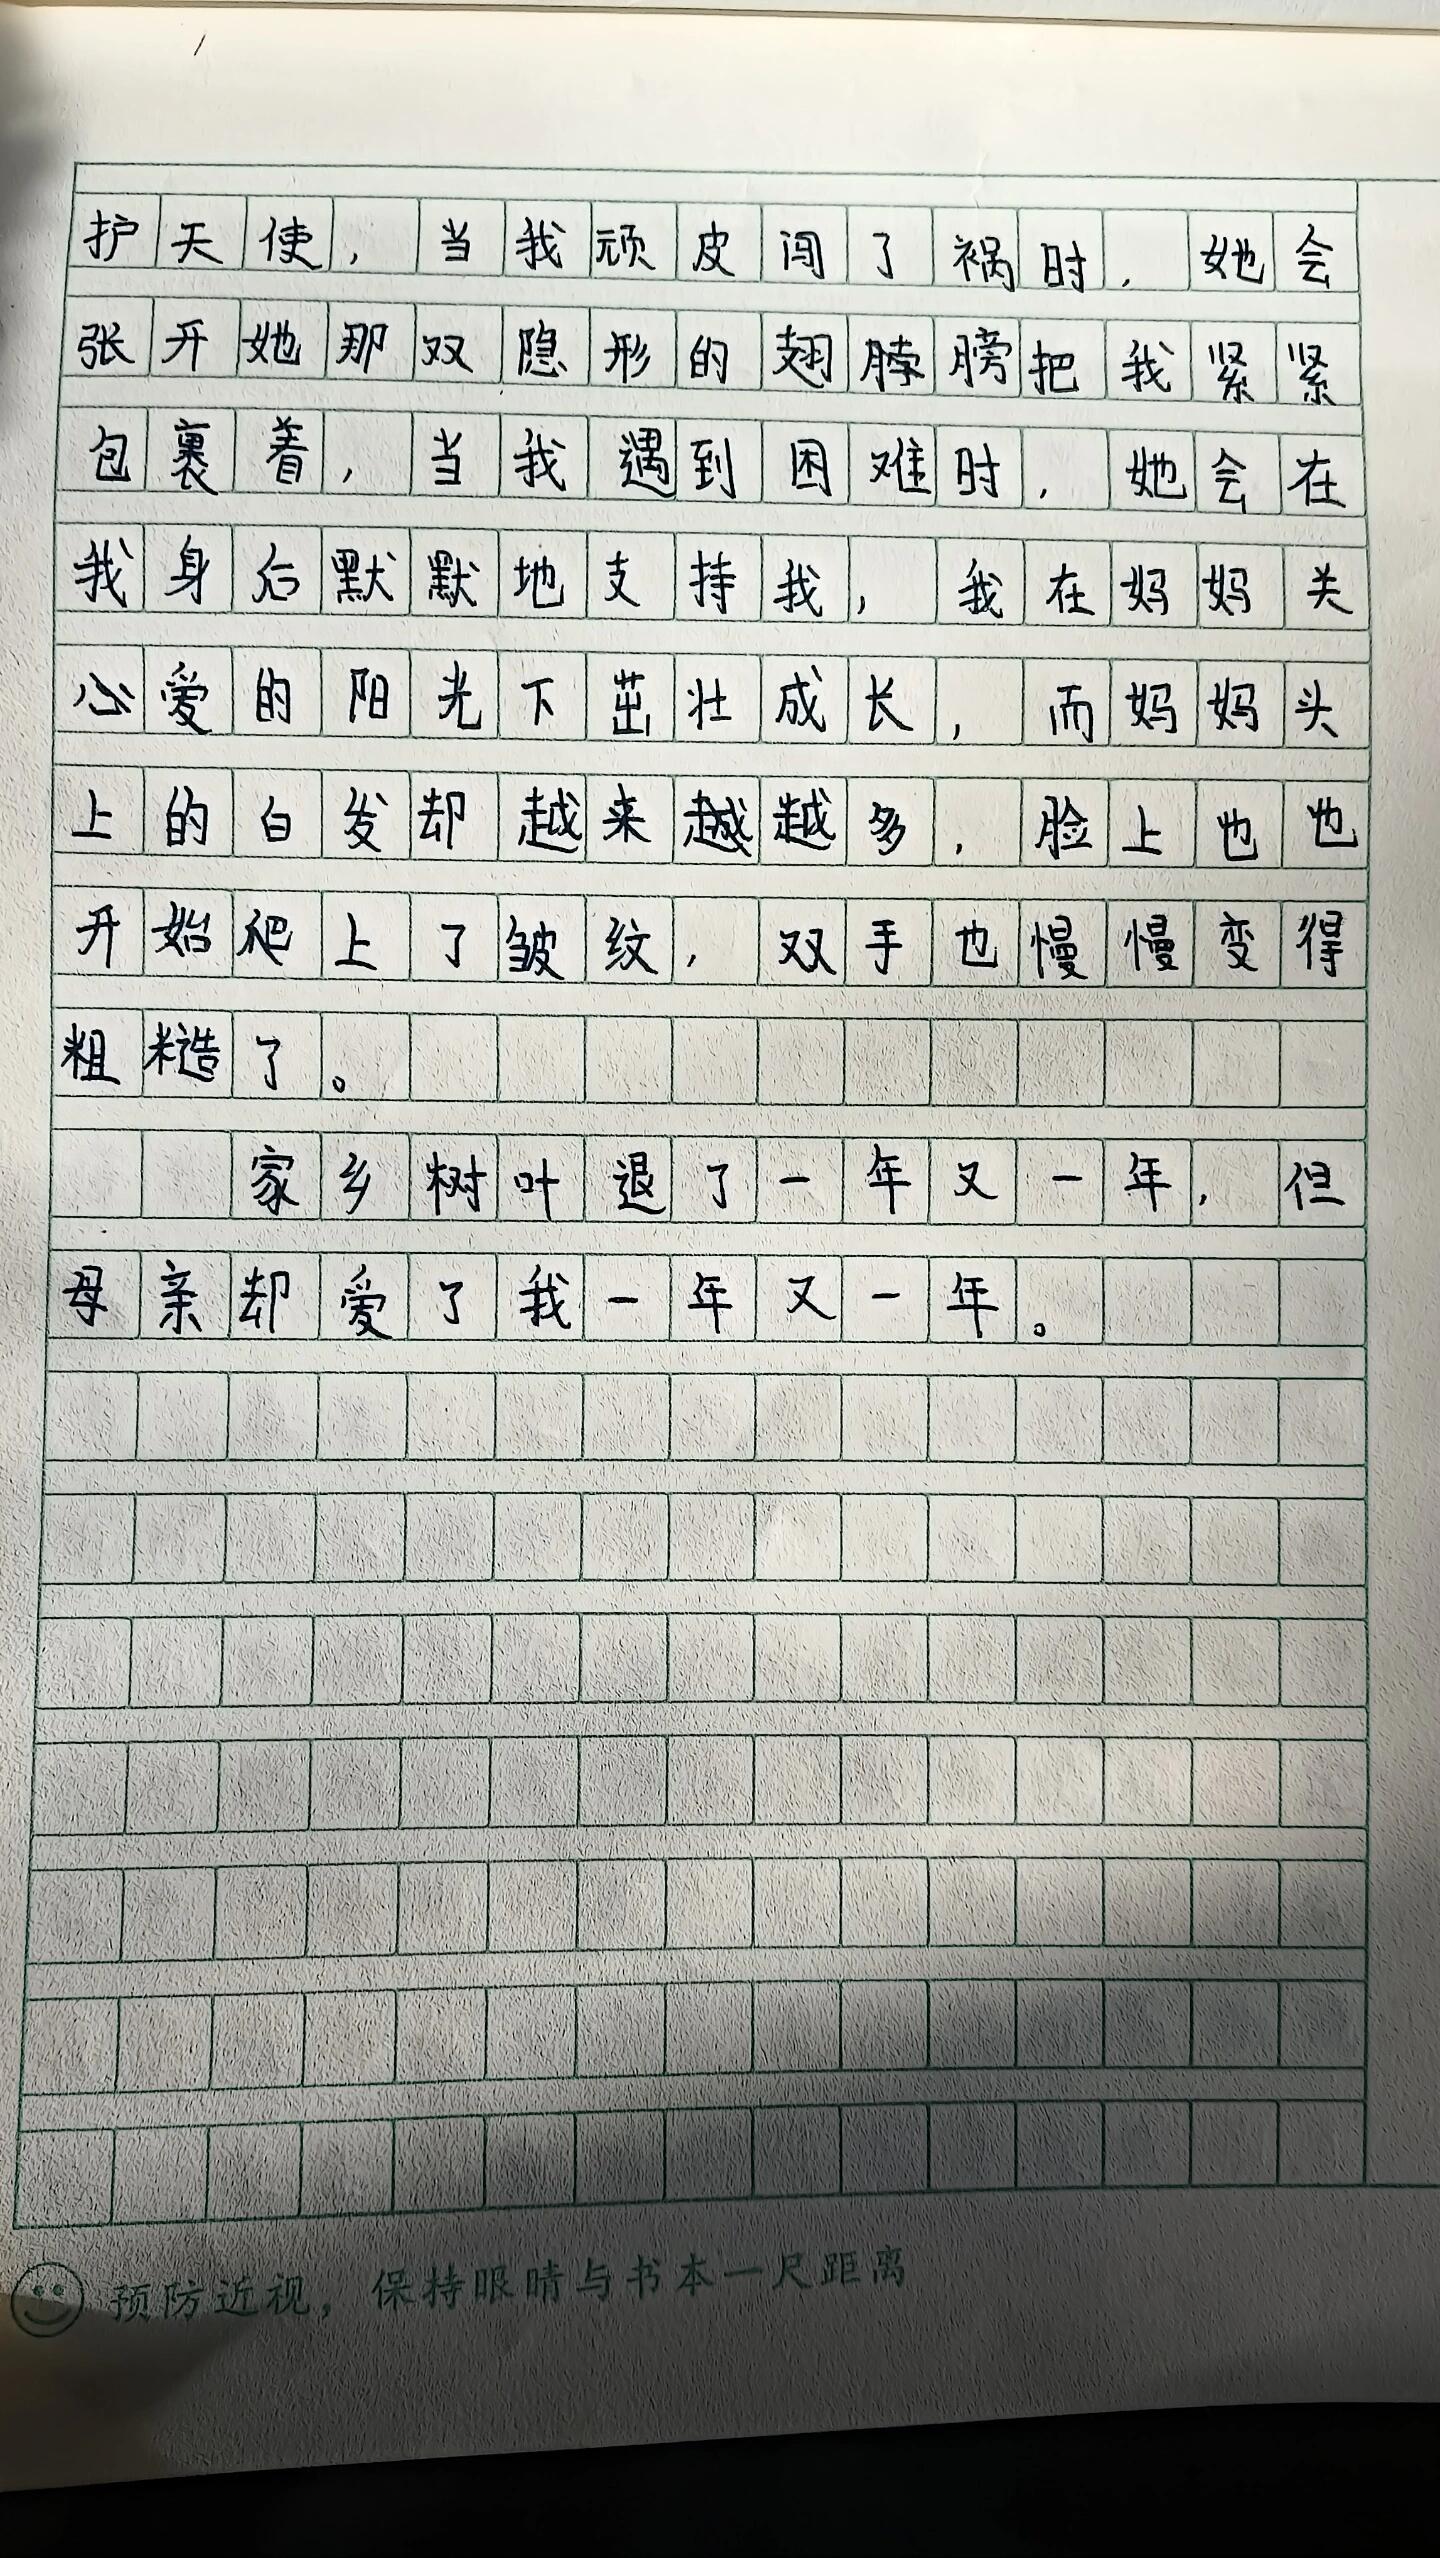 护天使，当我顽皮闯了祸时，她会
张开她那双隐形的翅脖膀把我紧紧
包裹着，当我遇到困难时，她会在
我身后默默地支持我，我在妈妈关
心爱的阳光下茁壮成长，而妈妈头
上的白发却越来越越多，脸上也也
开始爬上了皱纹，双手也慢慢变得
粗糙了。
家乡树叶退了一年又一年，但
母亲却爱了我一年又一年。
预防近视，保持眼睛与书本一尺距离